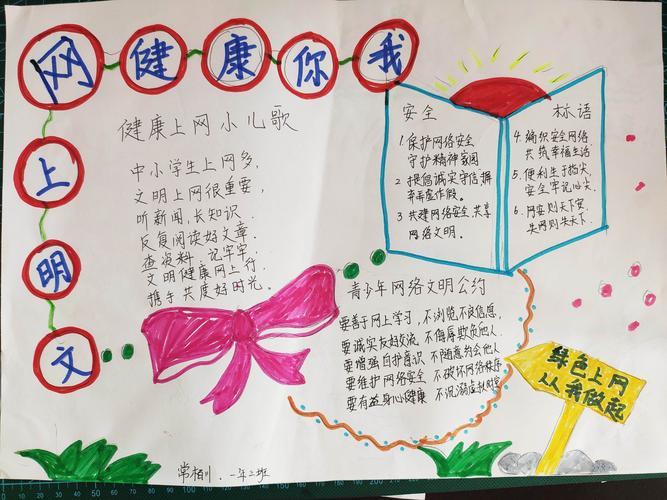 网健康你我
上
明
文
健康上网小儿歌
中小学生上网多，
文明上网很重要，
听新闻，长知识．
反复阅读好文章．
查资料 记牢牢．
文明健康网上行
携手共度好时光。
安全 标语
1．保护网络安全
守护精神家园
2．提倡诚实守信摒
弃弄虚作假。
3．共建网络安全，共享
网络文明。
4．编织安全网络
共筑幸福生活
5．便利生于指尖，
安全牢记心头．
6．网安则天下安，
失网则失天下．
青少年网络文明公约
要善于网上学习，不浏览不良信息，
要诚实友好交流，不侮辱欺负他人，
要增强自护意识 不随意约会他人
要维护网络安全 不破坏网络秩序
要有益身心健康 不沉溺虚拟时空
绿色上网
从我做起
一年二班